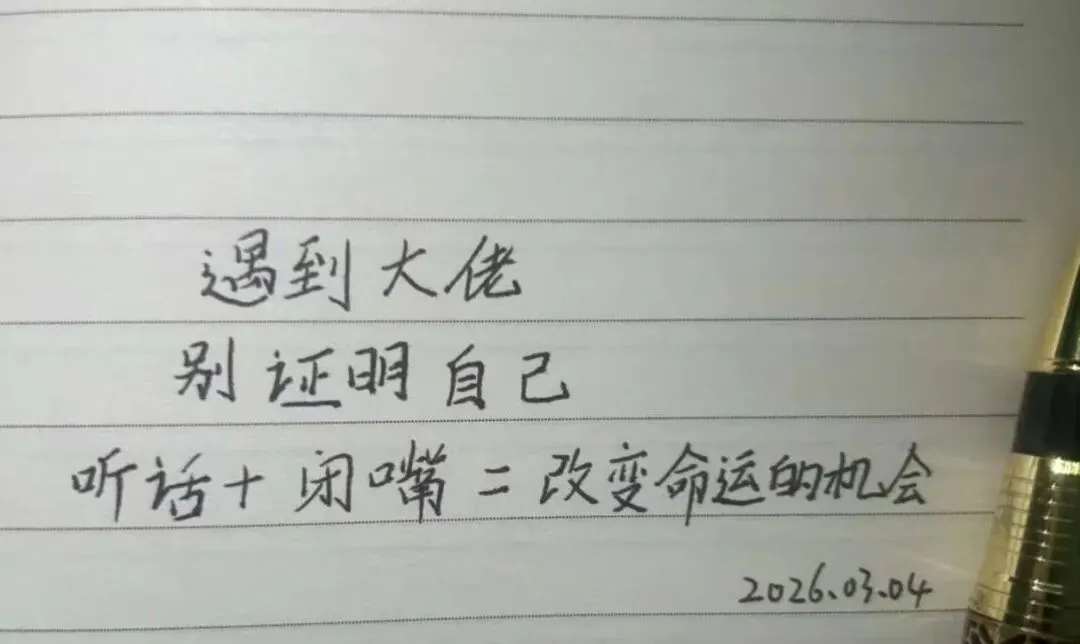 遇到大佬
别证明自己
听话+闭嘴=改变命运的机会
2026.03.04